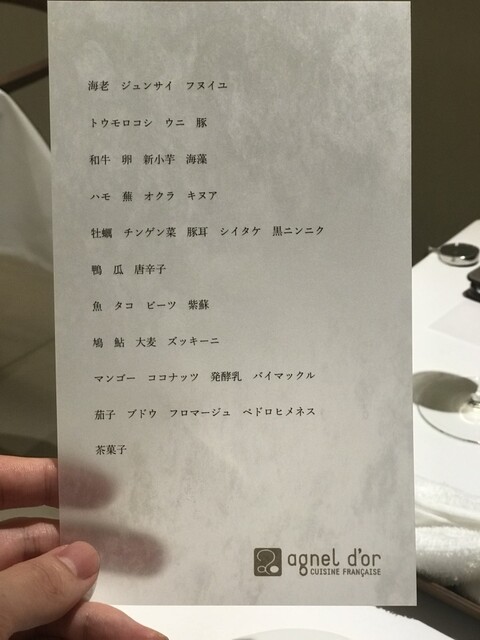 海老　ジュンサイ　フヌイユ
トウモロコシ　ウニ　豚
和牛　卵　新小芋　海藻
ハモ　蕪　オクラ　キヌア
牡蠣　チンゲン菜　豚耳　シイタケ　黒ニンニク
鴨　瓜　唐辛子
魚　タコ　ビーツ　紫蘇
鳩　鮎　大麦　ズッキーニ
マンゴー　ココナッツ　発酵乳　バイマックル
茄子　ブドウ　フロマージュ　ペドロヒメネス
茶菓子
agnel d'or
CUISINE FRANÇAISE